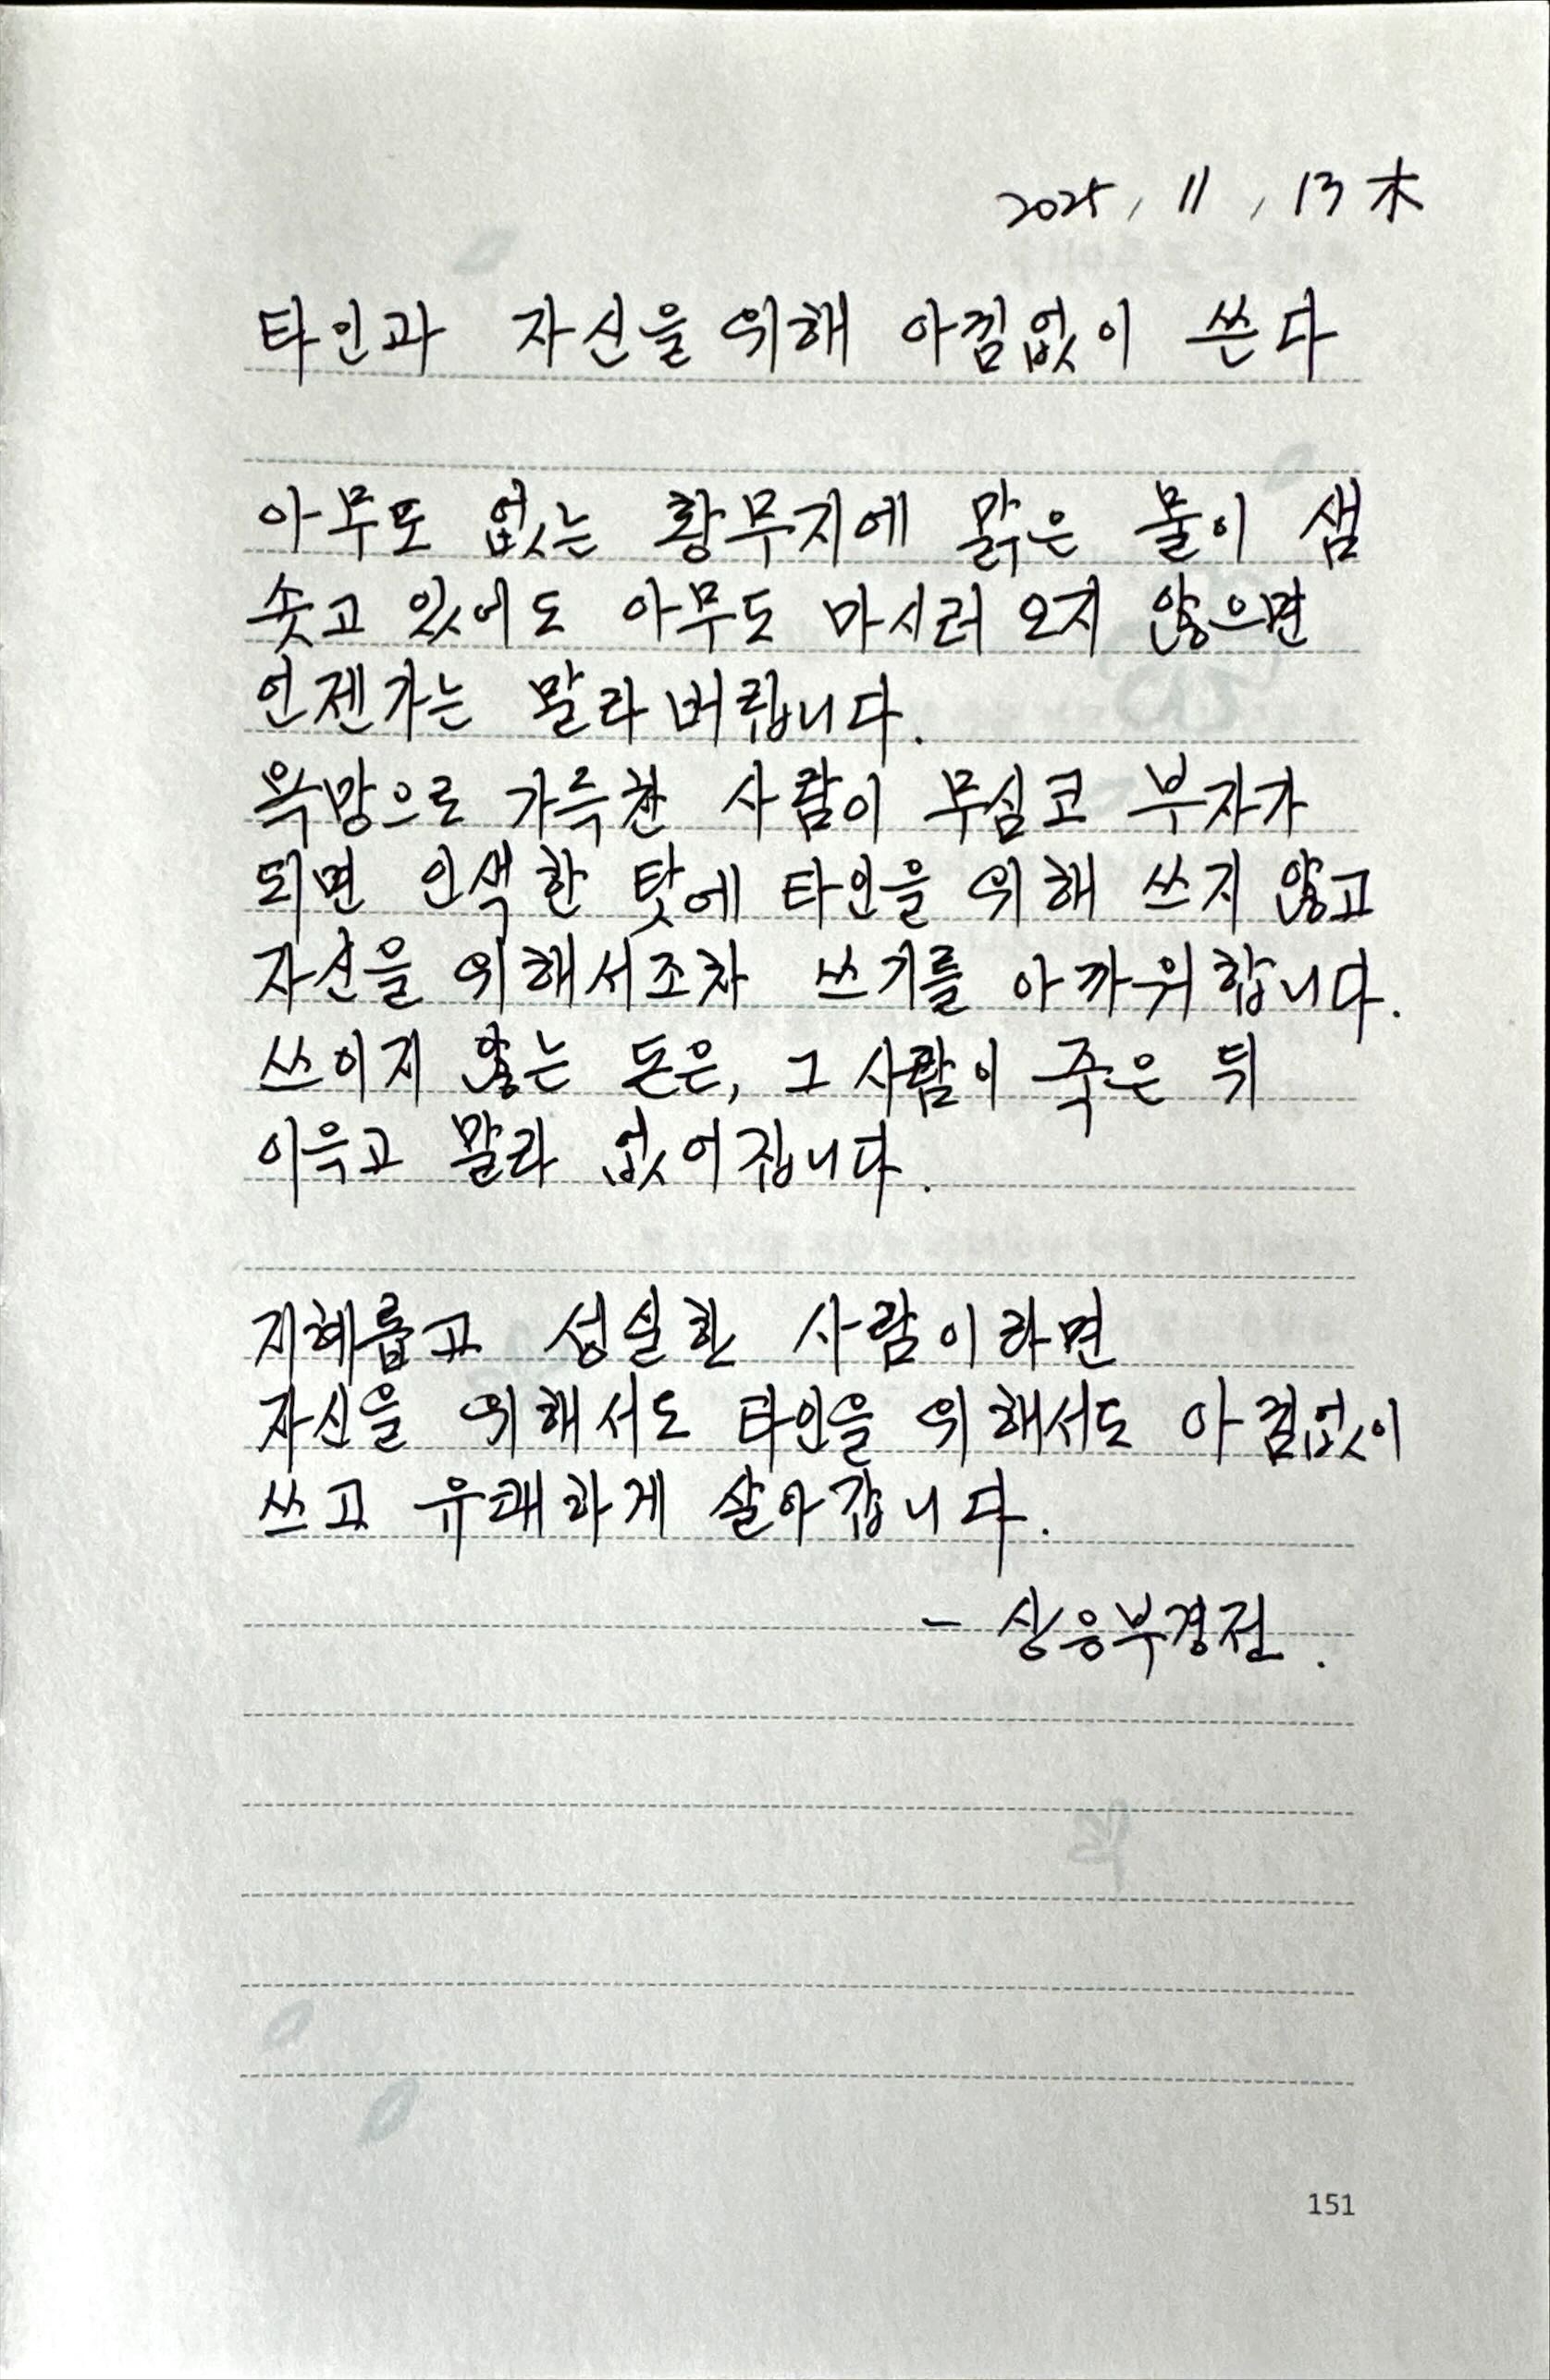 2025, 11, 13 木
타인과 자신을 위해 아낌없이 쓴다
아무도 없는 황무지에 맑은 물이 샘
솟고 있어도 아무도 마시러 오지 않으면
언젠가는 말라 버립니다.
욕망으로 가득찬 사람이 무심코 부자가
되면 인색한 탓에 타인을 위해 쓰지 않고
자신을 위해서조차 쓰기를 아까워합니다.
쓰이지 않는 돈은, 그 사람이 죽은 뒤
이윽고 말라 없어집니다.
지혜롭고 성실한 사람이라면
자신을 위해서도 타인을 위해서도 아낌없이
쓰고 유쾌하게 살아갑니다.
- 상응부경전.
151